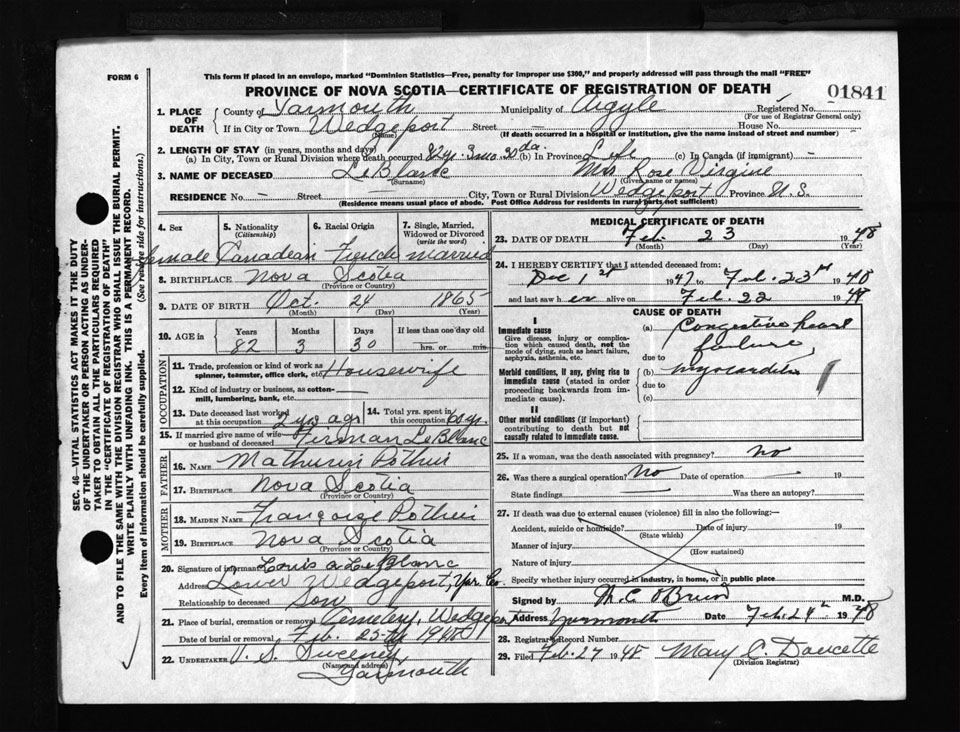 FORM 6
This form if placed in an envelope, marked "Dominion Statistics—Free, penalty for improper use $300," and properly addressed will pass through the mail "FREE"
PROVINCE OF NOVA SCOTIA—CERTIFICATE OF REGISTRATION OF DEATH
01841
1. PLACE OF DEATH County of Yarmouth Municipality of Argyle Registered No.
(For use of Registrar General only)
If in City or Town Wedgeport Street — House No.
(If death occurred in a hospital or institution, give the name instead of street and number)
2. LENGTH OF STAY (in years, months and days)
(a) In City, Town or Rural Division where death occurred 82yr. 3mo. 30da. (b) In Province Life (c) In Canada (if immigrant) —
3. NAME OF DECEASED LeBlanc Mrs Rose Virginie
(Surname) (Given name or names)
RESIDENCE No. — Street City, Town or Rural Division Wedgeport Province N.S.
(Residence means usual place of abode. Post Office Address for residents in rural parts not sufficient)
4. Sex 5. Nationality 6. Racial Origin 7. Single, Married, Widowed or Divorced
(Citizenship) (write the word)
female Canadian French married
8. BIRTHPLACE Nova Scotia
(Province or Country)
9. DATE OF BIRTH Oct. 24 1865
(Month) (Day) (Year)
10. AGE in Years Months Days If less than one day old
82 3 30 hrs. or min.
OCCUPATION
11. Trade, profession or kind of work as spinner, teamster, office clerk, etc. Housewife
12. Kind of industry or business, as cotton-mill, lumbering, bank, etc.
13. Date deceased last worked at this occupation 2 yrs ago 14. Total yrs. spent in this occupation
15. If married give name of wife or husband of deceased Firman LeBlanc
FATHER
16. NAME Mathurin Pothier
17. BIRTHPLACE Nova Scotia
(Province or Country)
MOTHER
18. MAIDEN NAME Françoise Pothier
19. BIRTHPLACE Nova Scotia
(Province or Country)
20. Signature of informant Louis a LeBlanc
Address Lower Wedgeport, Yar. Co.
Relationship to deceased Son
21. Place of burial, cremation or removal Cemetery, Wedgeport
Date of burial or removal Feb. 25th 1948
22. UNDERTAKER V. S. Sweeney
(Name and address)
Yarmouth
MEDICAL CERTIFICATE OF DEATH
23. DATE OF DEATH Feb. 23 1948
(Month) (Day) (Year)
24. I HEREBY CERTIFY that I attended deceased from:
Dec 1st 1947 to Feb. 23rd 1948
and last saw her alive on Feb. 22 1948
CAUSE OF DEATH
I
Immediate cause
Give disease, injury or complication which caused death, not the mode of dying, such as heart failure, asphyxia, asthenia, etc.
(a) Congestive heart failure
due to
Morbid conditions, if any, giving rise to immediate cause (stated in order proceeding backwards from immediate cause).
(b) myocarditis
due to
(c)
II
Other morbid conditions (if important) contributing to death but not causally related to immediate cause.
25. If a woman, was the death associated with pregnancy? no
26. Was there a surgical operation? no Date of operation — 19
State findings — Was there an autopsy?
27. If death was due to external causes (violence) fill in also the following:—
Accident, suicide or homicide? Date of injury 19
(State which)
Manner of injury
(How sustained)
Nature of injury
Specify whether injury occurred in industry, in home, or in public place
Signed by M. C. O'Brien M.D.
Address Yarmouth Date Feb. 24th 1948
28. Registrar's Record Number
29. Filed Feb. 27 1948 Mary C. Doucette
(Division Registrar)
SEC. 46—VITAL STATISTICS ACT MAKES IT THE DUTY
OF THE UNDERTAKER OR PERSON ACTING AS UNDERTAKER TO OBTAIN ALL THE PARTICULARS REQUIRED
IN THE "CERTIFICATE OF REGISTRATION OF DEATH"
AND TO FILE THE SAME WITH THE DIVISION REGISTRAR WHO SHALL ISSUE THE BURIAL PERMIT.
WRITE PLAINLY WITH UNFADING INK. THIS IS A PERMANENT RECORD.
Every item of information should be carefully supplied. (See reverse side for instructions.)